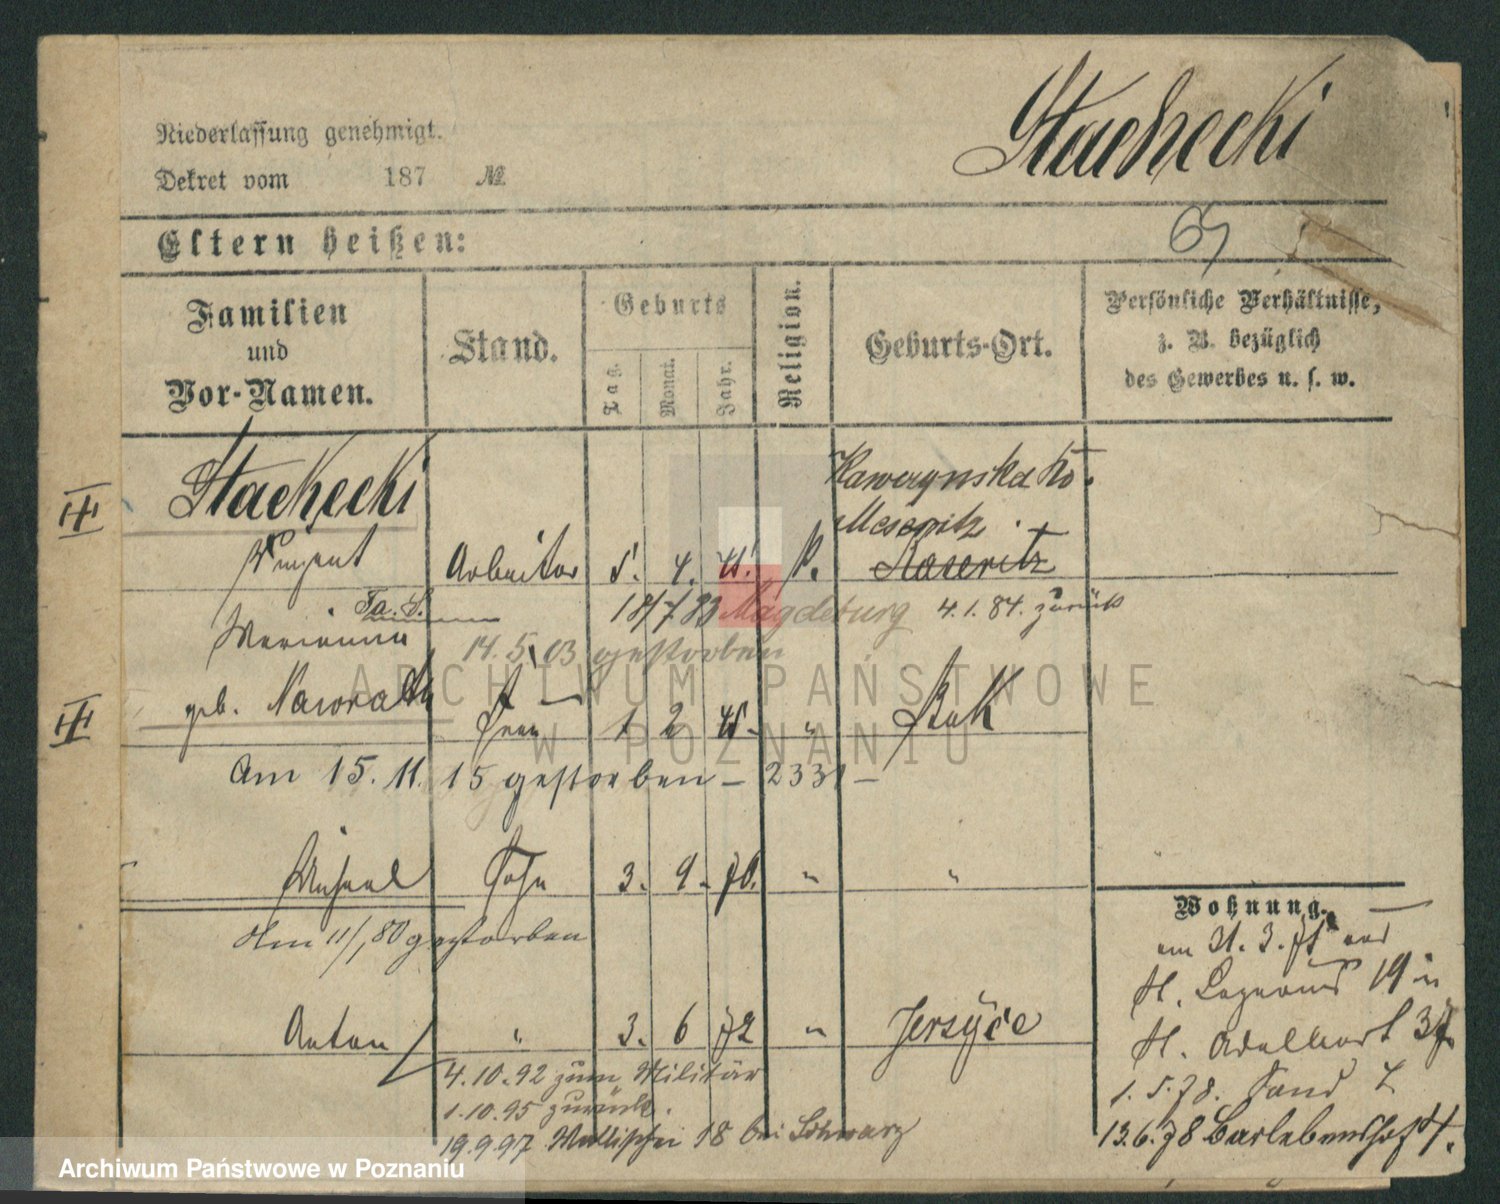 Niederlassung genehmigt.
Dekret vom 187 №
Stachecki
Eltern heißen:
Familien
und
Vor-Namen.
Stand.
Geburts
Tag.
Monat.
Jahr.
Religion.
Geburts-Ort.
Persönliche Verhältnisse,
z. B. bezüglich
des Gewerbes u. s. w.
Stachecki
Meseritz
Vinzent Arbeiter 5. 4. 45. K.
18/7 83 Magdeburg 4.1.84. zurück
Marianna
14.5.03 gestorben
geb. Frau 1 2 45. " Buk
Am 15.11.15 gestorben – 2331 –
Michael Sohn 3. 9. 70. " "
Am 11/1 80 gestorben
Wohnung.
am 31.3.71
St. Lazarus 19
Anton " 3. 6 72 " Jersyce
St. Adalbert 37.
4.10.92 zum Militär
1.5.78. Sand
1.10.95 zurück.
13.6.78 Barlebenshof
19.9.97 Wallischei 18 bei Schwarz
ARCHIWUM PAŃSTWOWE
W POZNANIU
Archiwum Państwowe w Poznaniu